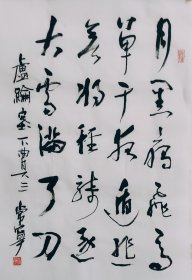 月黑雁飛高
單于夜遁逃
欲將輕騎逐
大雪滿弓刀
盧綸塞下曲其三